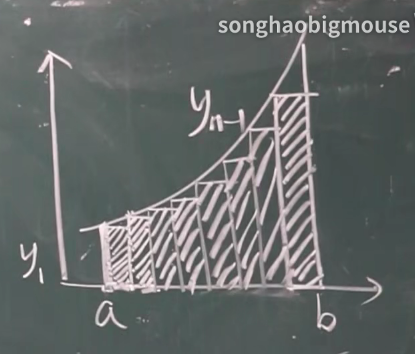 songhaobigmouse
yn-1
y1
a
b